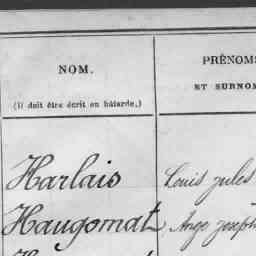 NOM.
PRÉNOMS
ET SURNOM
(Il doit être écrit en bâtarde.)
Harlais Louis jules
Haugomat Ange joseph